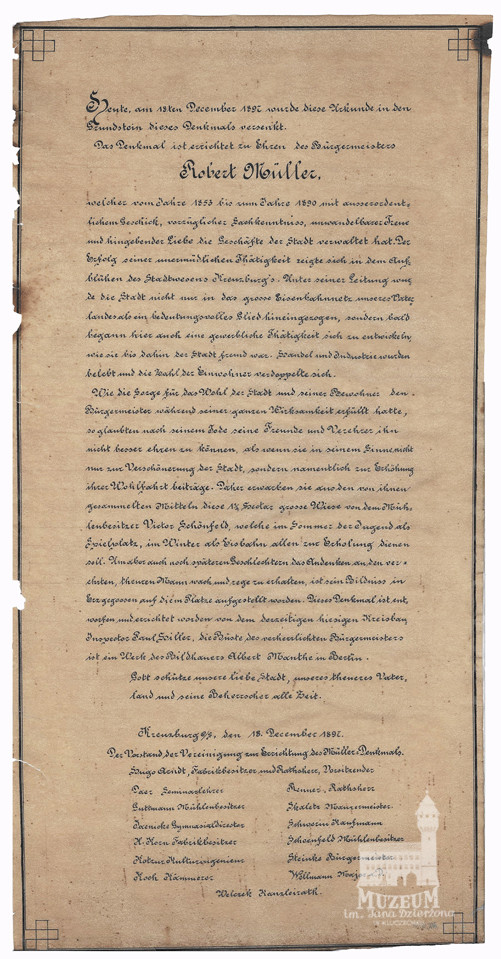 Heute, am 18ten December 1892 wurde diese Urkunde in den
Grundstein dieses Denkmals versenkt.
Das Denkmal ist errichtet zu Ehren des Bürgermeisters
Robert Müller,
welcher vom Jahre 1853 bis zum Jahre 1890 mit ausserordent-
lichem Geschick, vorzüglicher Sachkenntniss, unwandelbarer Treue
und hingebender Liebe die Geschäfte der Stadt verwaltet hat. Der
Erfolg seiner unermüdlichen Thätigkeit zeigte sich in dem Auf-
blühen des Stadtwesens Kreuzburg's. Unter seiner Leitung wur-
de die Stadt nicht nur in das grosse Eisenbahnnetz unseres Vater-
landes als ein bedeutungsvolles Glied hineingezogen, sondern bald
begann hier auch eine gewerbliche Thätigkeit sich zu entwickeln,
wie sie bis dahin der Stadt fremd war. Handel und Industrie wurden
belebt und die Zahl der Einwohner verdoppelte sich.
Wie die Sorge für das Wohl der Stadt und seiner Bewohner den
Bürgermeister während seiner ganzen Wirksamkeit erfüllt hatte,
so glaubten nach seinem Tode seine Freunde und Verehrer ihn
nicht besser ehren zu können, als wenn sie in seinem Sinne nicht
nur zur Verschönerung der Stadt, sondern namentlich zur Erhöhung
ihrer Wohlfahrt beitrüge. Daher erwarben sie aus den von ihnen
gesammelten Mitteln diese Hectar grosse Wiese von dem Müh-
lenbesitzer Victor Schönfeld, welche im Sommer der Jugend als
Spielplatz, im Winter als Eisbahn allen zur Erholung dienen
soll. Um aber auch noch späteren Geschlechtern das Andenken an den ver-
ehrten, theuren Mann wach und rege zu erhalten, ist sein Bildniss in
Erz gegossen auf diesem Platze aufgestellt worden. Dieses Denkmal ist ent-
worfen und errichtet worden von dem derzeitigen hiesigen Kreisbau
Inspector Paul Hiller, die Büste des verherrlichten Bürgermeisters
ist ein Werk des Bildhauers Albert Manthe in Berlin.
Gott schütze unsere liebe Stadt, unseres theueres Vater-
land und seine Beherrscher alle Zeit.
Kreuzburg O/S, den 18. December 1892.
Der Vorstand der Vereinigung zur Errichtung des Müller-Denkmals.
Hugo Arndt, Fabrikbesitzer und Rathsherr, Vorsitzender
Paer Seminarlehrer
Renner, Rathsherr
Guttmann Mühlenbesitzer
Skaletz Maurermeister.
Jaenicke Gymnasialdirector
Schwerin Kaufmann
H. Korn Fabrikbesitzer
Schoenfeld Mühlenbesitzer
Kulturingenieur
Steinke Bürgermeister
Koch Kämmerer
Wellmann Major
Welczek Kanzleirath.
MUZEUM
im. Jana Dzierżona
W KLUCZBORKU